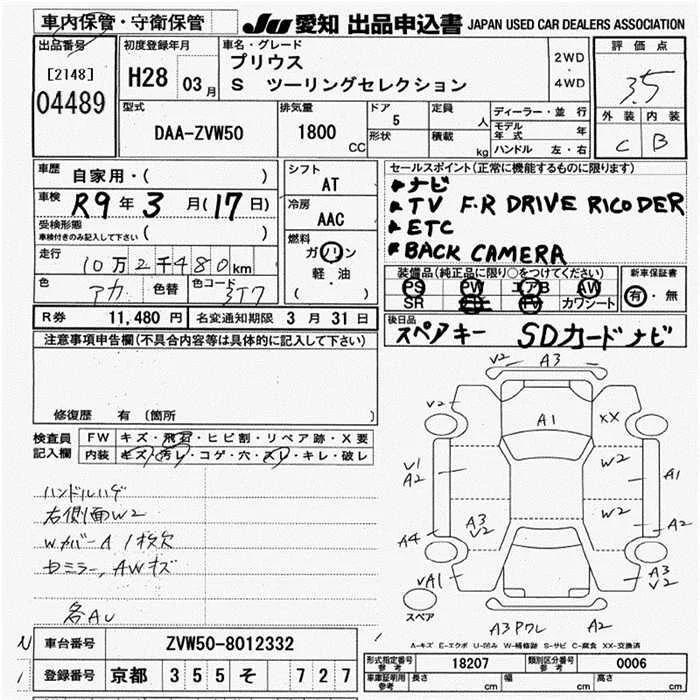 車内保管・守衛保管
JU 愛知 出品申込書 JAPAN USED CAR DEALERS ASSOCIATION
出品番号
[2148]
04489
初度登録年月
H28 03月
車名・グレード
プリウス
S ツーリングセレクション
2WD
・
4WD
評価点
3.5
外装 内装
C B
型式
DAA-ZVW50
排気量
1800
CC
ドア
5
形状
定員
人
積載
kg
ディーラー・並行
モデル年式 年
ハンドル 左・右
車歴
自家用・( )
車検
R9年3月(17日)
受検形態
車検付きのみ記入して下さい ( )
走行
10万2千480km
色 アカ 色替 色コード 3T7
R券 11,480 円 名変通知期限 3月31日
シフト
AT
冷房
AAC
燃料
ガソリン
軽・油
( )
セールスポイント(正常に機能するものに限ります)
ナビ
TV F.R DRIVE RICODER
ETC
BACK CAMERA
装備品(純正品に限り○をつけてください)
PS PW エアB AW
SR カワシート
新車保証書
有・無
後日品
スペアキー SDカードナビ
注意事項申告欄(不具合内容等は具体的に記入して下さい)
修復歴 有 (箇所
検査員記入欄
FW キズ・飛石・ヒビ割・リペア跡・X要
内装 キズ・汚レ・コゲ・穴・スレ・キレ・破レ
ハンドルハゲ
右側面W2
WカバーA1枚欠
セミラー、AWキズ
各AU
V2 A3
V2
A1
XX
V1
A2
W2
A1
W2
A2
A3
V2
A4
VA1
A3
V2
スペア
A3 Pワレ A2
A-キズ E-エクボ U-凹み W-補修跡 S-サビ C-腐食 XX-交換済
車台番号 ZVW50-8012332
登録番号 京都 355 そ 727
型式指定番号
参考
18207
類別区分番号
参考
0006
車庫証明用
参考
長さ cm 幅 cm 高さ cm